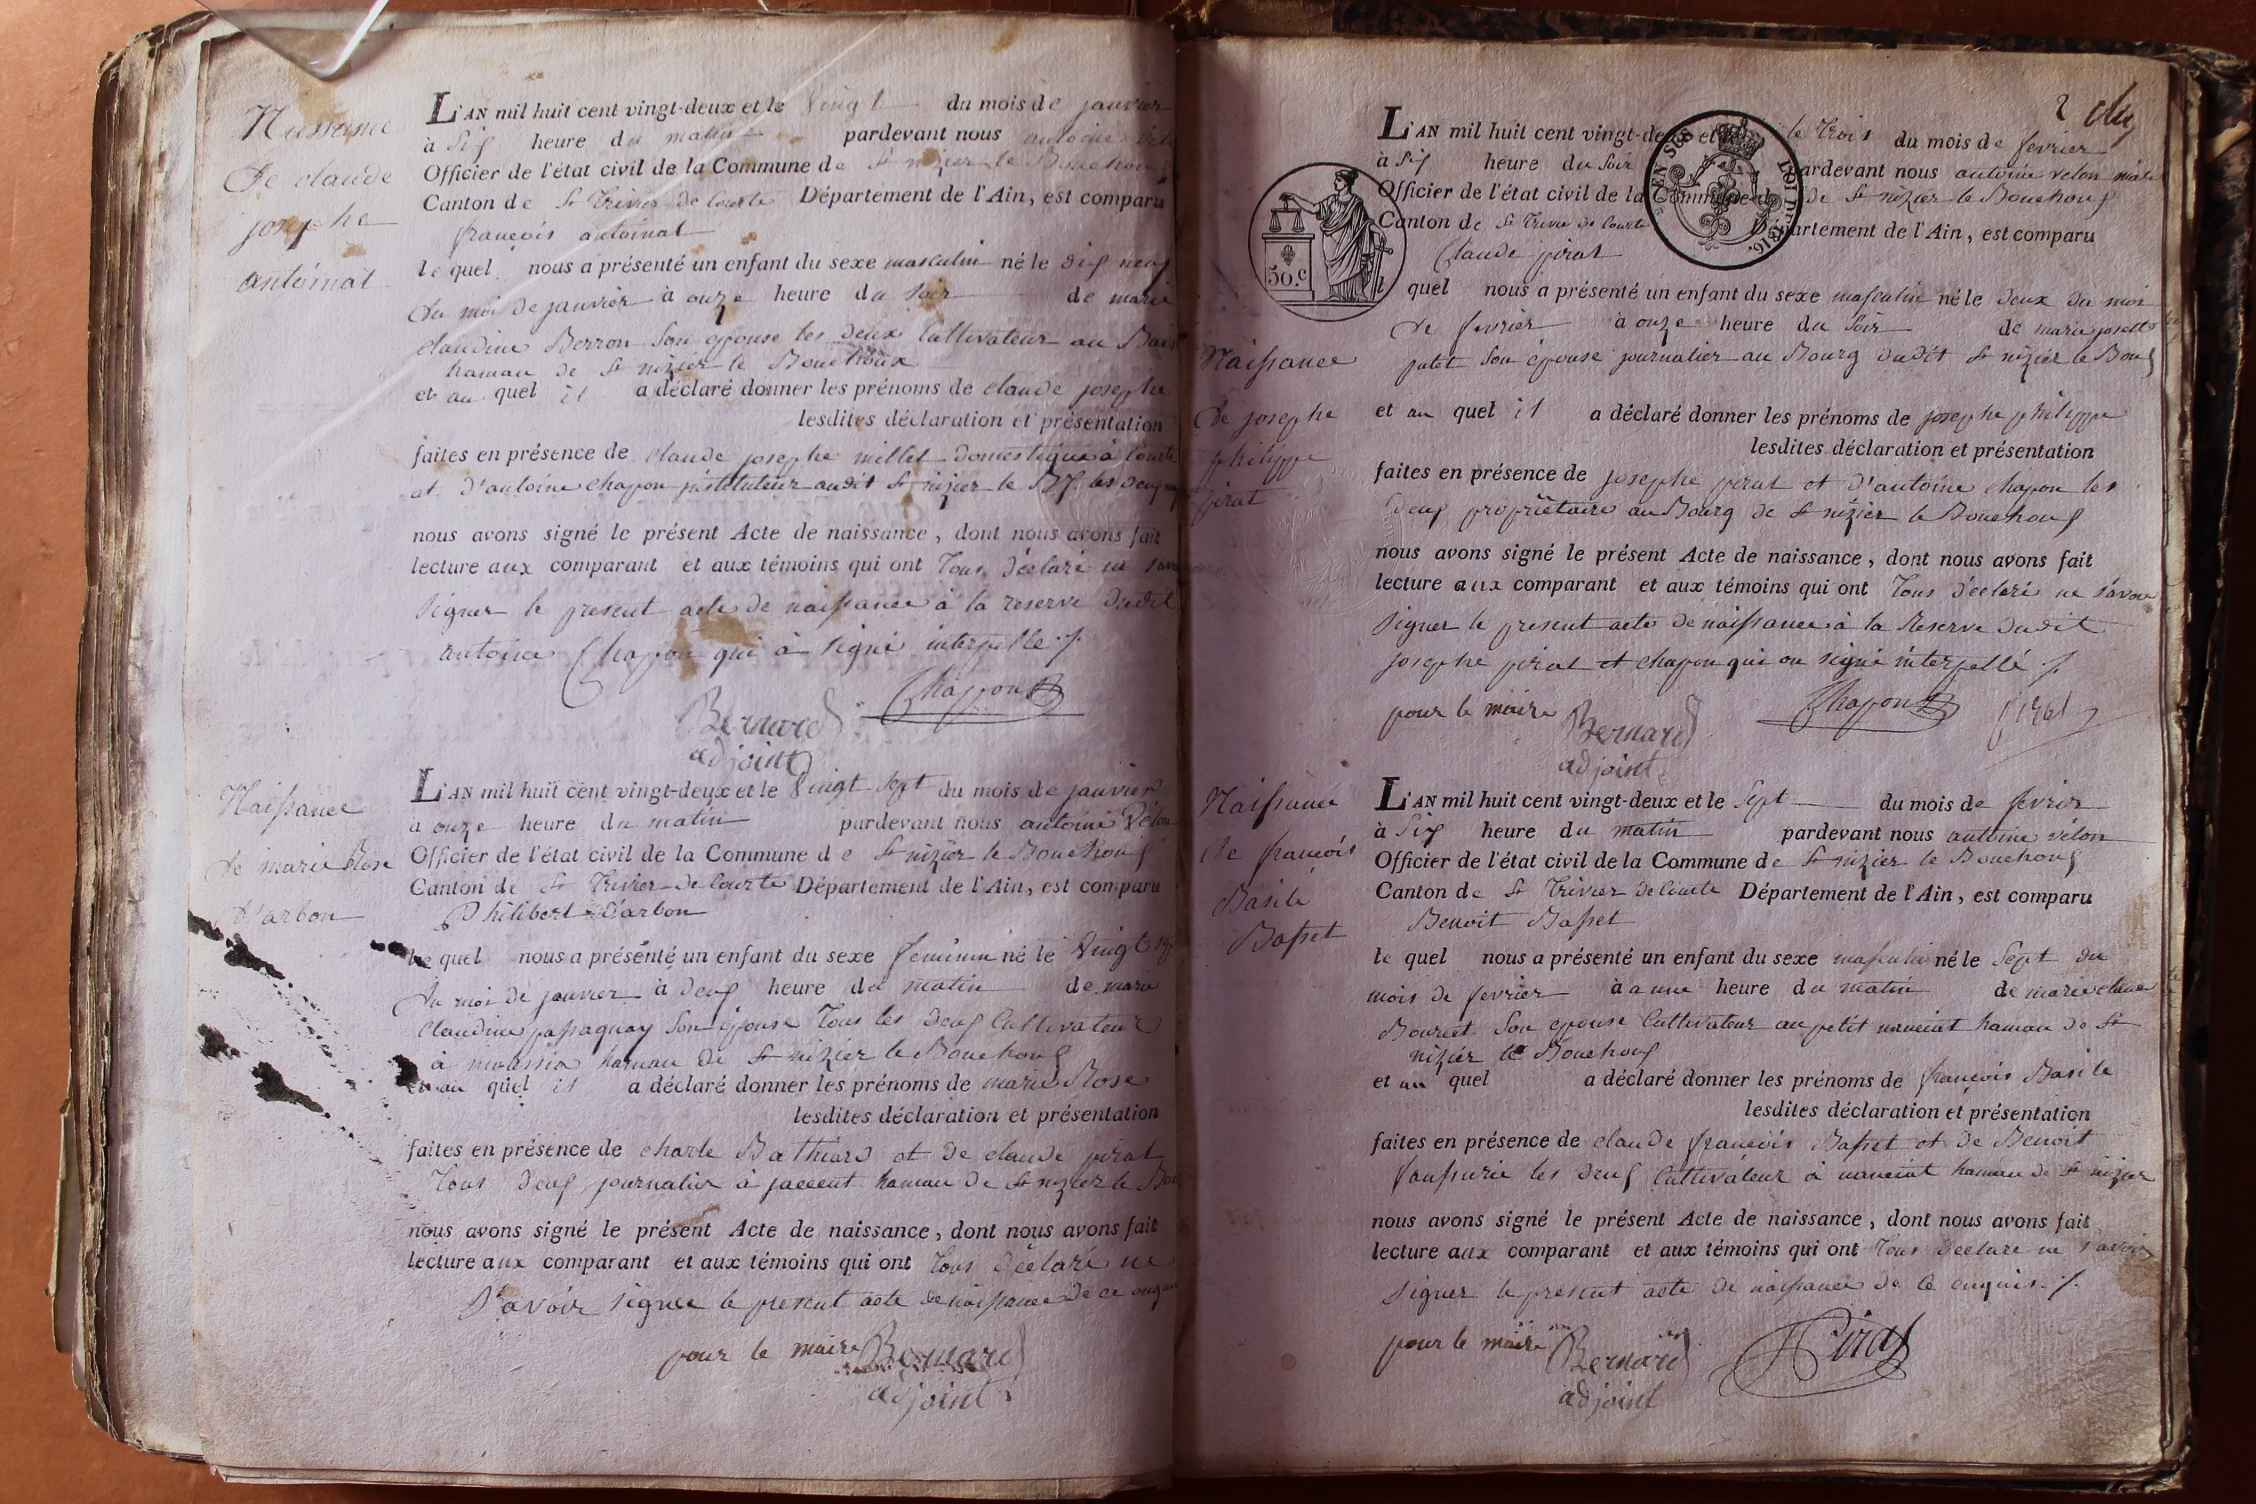 Naissance
De claude
josephe
antoinat
L'AN mil huit cent vingt-deux et le Vingt du mois de janvier
à Six heure du matin pardevant nous antoine
Officier de l'état civil de la Commune de St nizier le Bouchoux
Canton de St Trivier de Courte Département de l'Ain, est comparu
françois antoinat
le quel nous a présenté un enfant du sexe masculin né le dix neuf
du moi de janvier à onze heure du soir de marie
claudine Berron son epouse les deux Cultivateur au Bais
hamau de St nizier le Bouchoux
et au quel il a déclaré donner les prénoms de claude josephe
lesdites déclaration et présentation
faites en présence de claude josephe millet domestique à Courte
et d'antoine chapon instituteur audit St nizier le Bx les deux
nous avons signé le présent Acte de naissance, dont nous avons fait
lecture aux comparant et aux témoins qui ont Tous déclaré ne
signer le present acte de naissance à la reserve dudit
antoine Chapon qui à signé interpellé ./.
Bernard Chapon
adjoint
Naissance
De marie Rose
D'arbon
L'AN mil huit cent vingt-deux et le Vingt sept du mois de janvier
à onze heure du matin pardevant nous antoine Vélon
Officier de l'état civil de la Commune de St nizier le Bouchoux
Canton de St Trivier de Courte Département de l'Ain, est comparu
Philibert D'arbon
le quel nous a présenté un enfant du sexe feminin né le Vingt
du moi de janvier à deux heure du matin de marie
claudine passaquay son épouse Tous les deux Cultivateur
à hamau de St nizier le Bouchoux
et au quel il a déclaré donner les prénoms de marie Rose
lesdites déclaration et présentation
faites en présence de charle Bathiard et de claude pirat
Tous deux journalier à hamau de St nizier le
nous avons signé le présent Acte de naissance, dont nous avons fait
lecture aux comparant et aux témoins qui ont Tous déclaré ne
S'avoir signer le present acte de naissance de ce
pour le maire Bernard
adjoint
2
L'AN mil huit cent vingt-deux et le Trois du mois de fevrier
à Six heure du Soir pardevant nous antoine velon
Officier de l'état civil de la Commune de St nizier le Bouchoux
Canton de St Trivier de Courte Département de l'Ain, est comparu
Claude pirat
30.c
LOI DE 1816.
quel nous a présenté un enfant du sexe masculin né le deux du moi
de fevrier à onze heure du Soir de marie josette
putet son épouse journalier au Bourg dudit St nizier le Boux
Naissance
De josephe
philippe
pirat
et au quel il a déclaré donner les prénoms de josephe philippe
lesdites déclaration et présentation
faites en présence de josephe pirat et d'antoine chapon les
deux propriétaire au Bourg de St nizier le Bouchoux
nous avons signé le présent Acte de naissance, dont nous avons fait
lecture aux comparant et aux témoins qui ont Tous déclaré ne s'avoir
signer le present acte de naissance à la Reserve dudit
josephe pirat et chapon qui on signé interpellé ./.
pour le maire Bernard Chapon pirat
adjoint
Naissance
De françois
Basile
Basset
L'AN mil huit cent vingt-deux et le Sept du mois de fevrier
à Six heure du matin pardevant nous antoine vélon
Officier de l'état civil de la Commune de St nizier le Bouchoux
Canton de St Trivier de Courte Département de l'Ain, est comparu
Benoit Basset
le quel nous a présenté un enfant du sexe masculin né le Sept du
mois de fevrier à a une heure du matin de marie claudine
Bouret son epouse Cultivateur au petit hamau de St
nizier le Bouchoux
et au quel a déclaré donner les prénoms de françois Basile
lesdites déclaration et présentation
faites en présence de claude françois Basset et de Benoit
les deux Cultivateur à hamau de St nizier
nous avons signé le présent Acte de naissance, dont nous avons fait
lecture aux comparant et aux témoins qui ont Tous déclaré ne s'avoir
signer le present acte de naissance de ce enquis ./.
pour le maire Bernard Pirat
adjoint